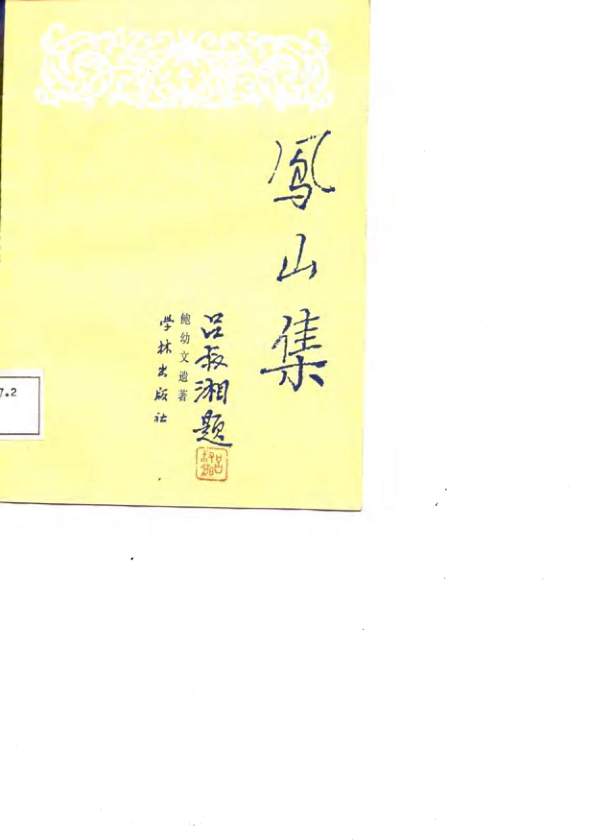 鳳山集
吕叔湘题
鲍幼文遗著
学林出版社
7.2